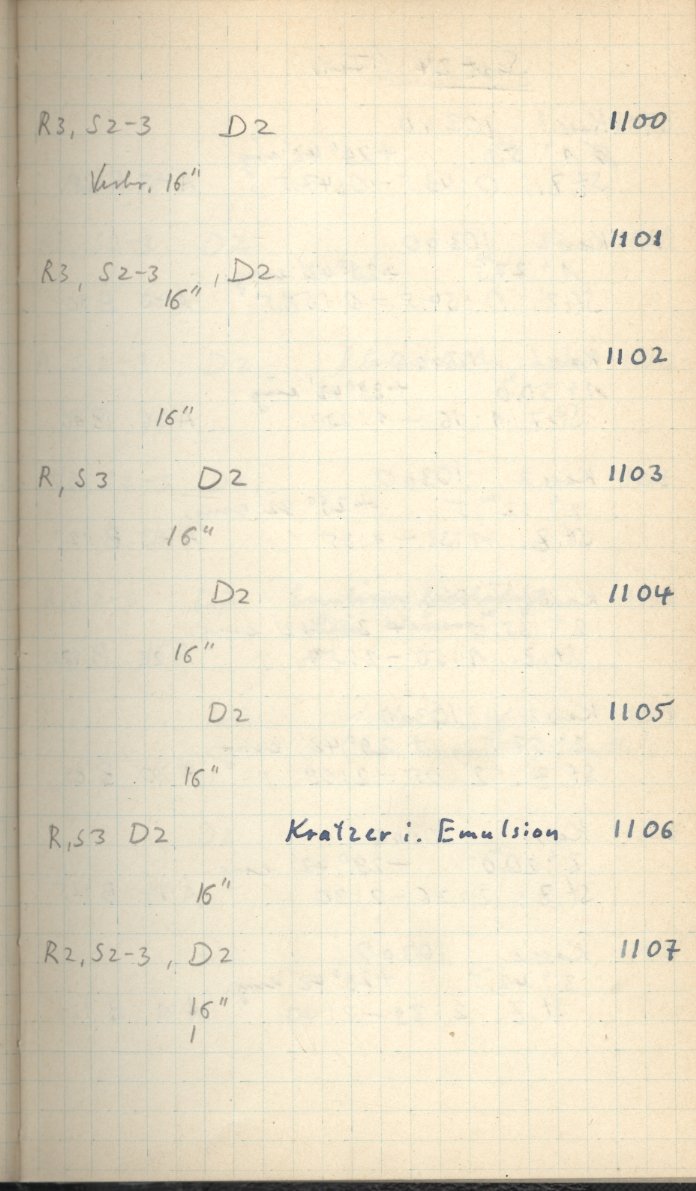 R3, S2-3 D2 1100
16"
1101
R3, S2-3, D2
16"
1102
16"
R, S3 D2 1103
16"
D2 1104
16"
D2 1105
16"
R, S3 D2 Kratzer i. Emulsion 1106
16"
R2, S2-3, D2 1107
16"
1